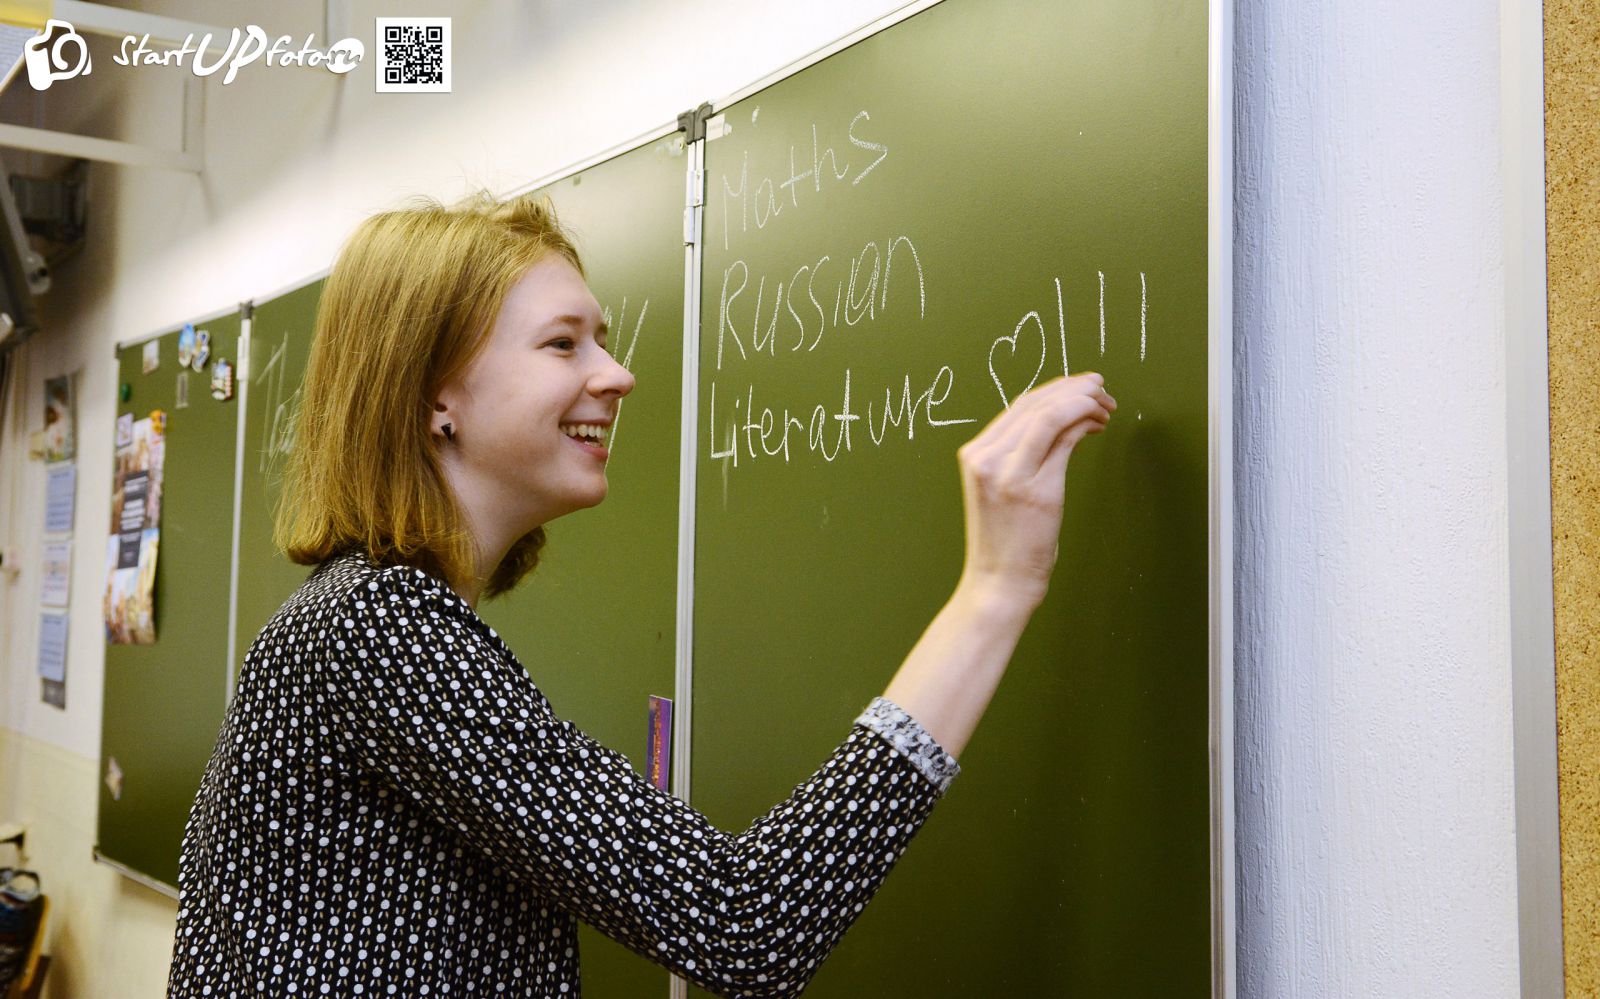 StartUPfoto.ru
Maths
Russian
Literature ♡!!!